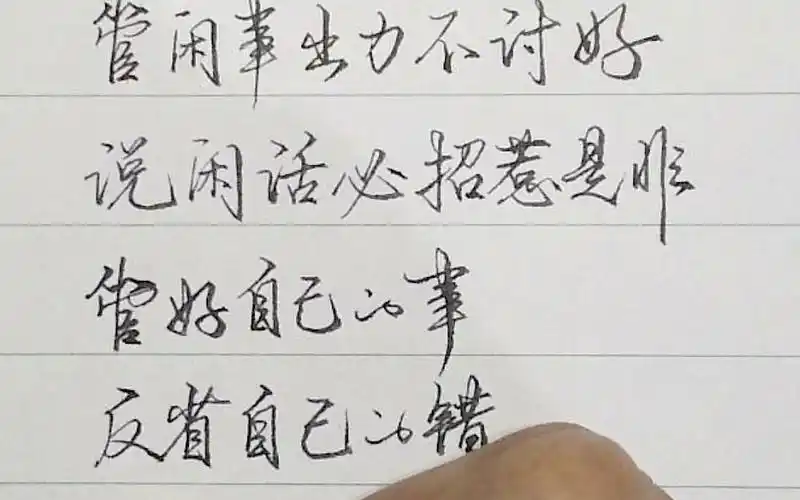 管闲事出力不讨好
说闲话必招惹是非
管好自己的事
反省自己的错